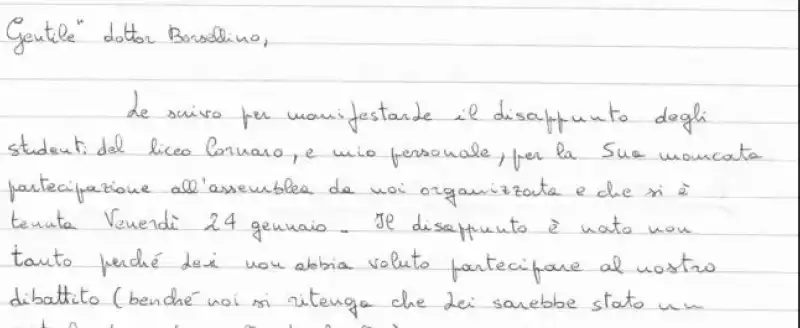 Gentile" dottor Borsellino,
Le scrivo per manifestarle il disappunto degli
studenti del liceo Cornaro, e mio personale, per la Sua mancata
partecipazione all'assemblea da noi organizzata e che si è
tenuta Venerdì 24 gennaio. Il disappunto è nato non
tanto perché Lei non abbia voluto partecipare al nostro
dibattito (benché noi si ritenga che Lei sarebbe stato un